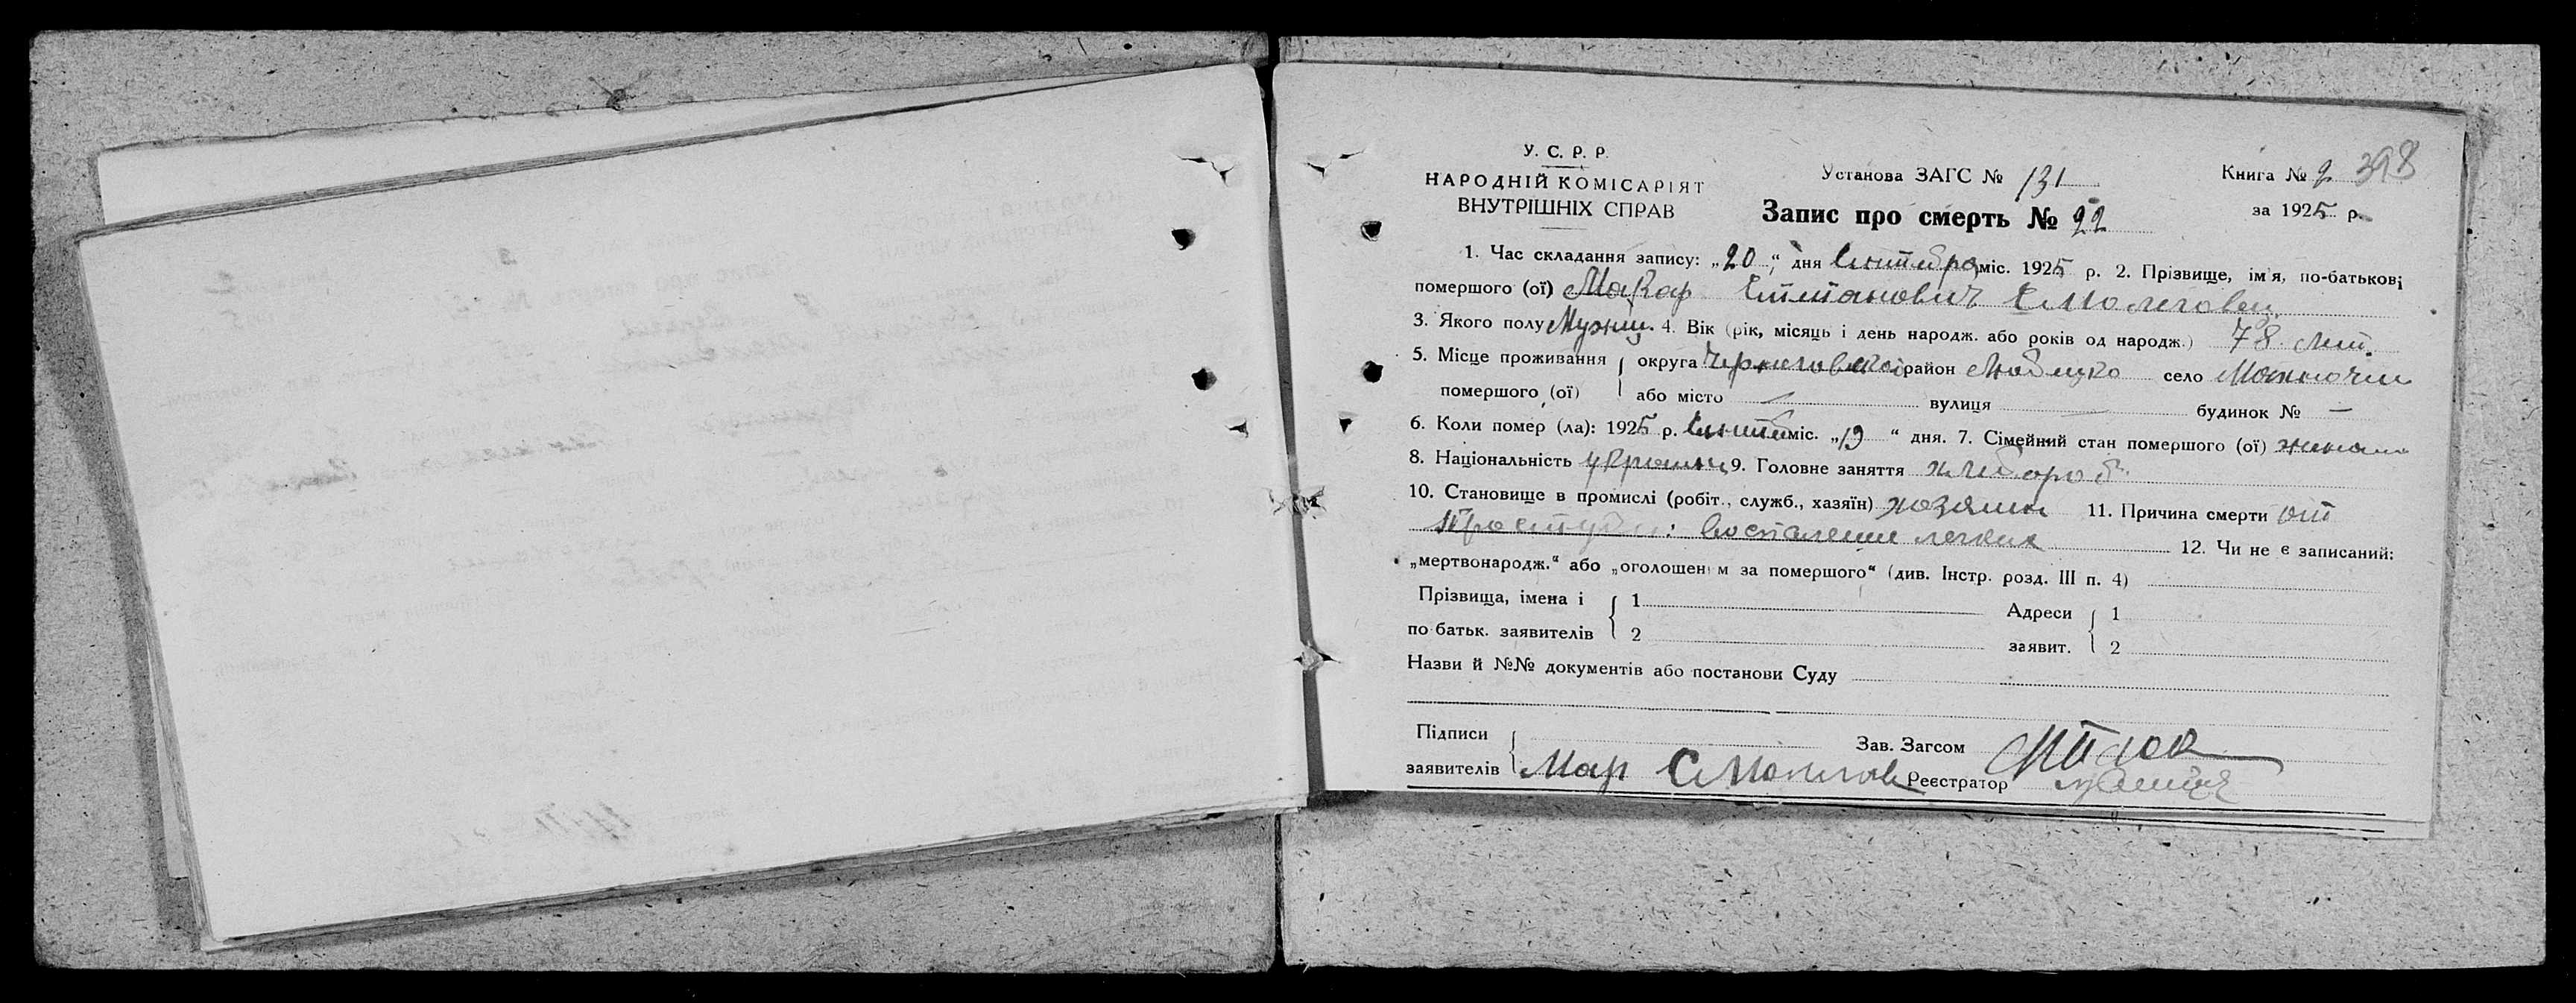 У. С. Р. Р.
НАРОДНІЙ КОМІСАРІЯТ
ВНУТРІШНІХ СПРАВ
Установа ЗАГС № 131
Запис про смерть № 22
Книга № 2 398
за 1925 р.
1. Час складання запису: „20„ дня Сентебра міс. 1925 р. 2. Прізвище, ім'я, по-батькові
померпого (ої) Макар Степанович
3. Якого полу Мужч. 4. Вік (рік, місяць і день народж. або років од народж.) 78 лет.
5. Місце проживання округа Черниговской район село
померпого (ої) або місто — вулиця — будинок № —
6. Коли помер (ла): 1925 р. Сентеб міс. „19 “ дня. 7. Сімейний стан померпого (ої) женат
8. Національність украинец 9. Головне заняття хлебороб
10. Становище в промислі (робіт., служб., хазяїн) хозяин 11. Причина смерти от
простуды: воспаление легких 12. Чи не є записаний:
„мертвонародж.“ або „оголошеним за померпого“ (див. Інстр. розд. III п. 4)
Прізвища, імена і 1 Адреси 1
по батьк. заявителів 2 заявит. 2
Назви й №№ документів або постанови Суду
Підписи Зав. Загсом
заявителів Реєстратор